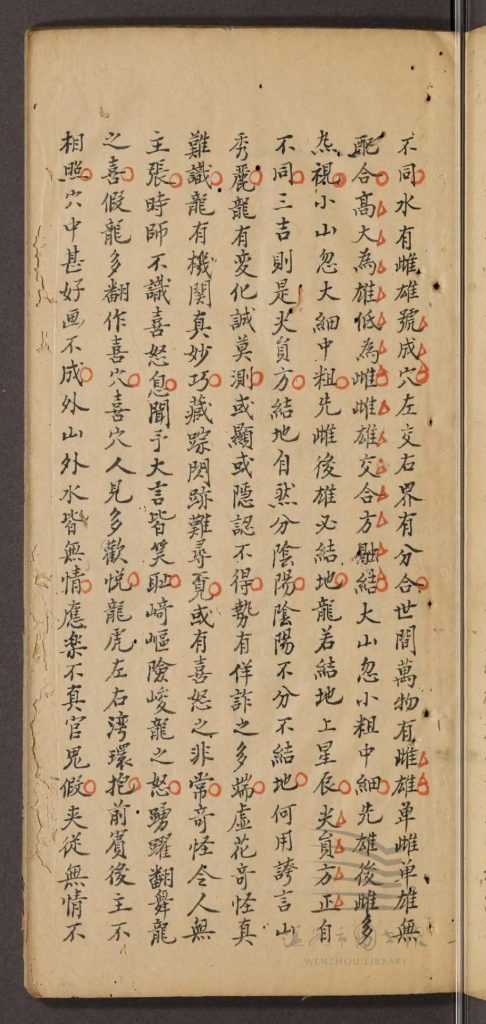 不同水有雌雄號成穴左交右界有分合世間萬物有雌雄单雌单雄無
配合高大為雄低為雌雌雄交合方融結大山忽小粗中細先雄後雌多
烋視小山忽大細中粗先雌後雄必結地龍若結地上星辰尖負方正自
不同三吉則是尖負方結地自然分陰陽陰陽不分不結地何用誇言山
秀麗龍有変化誠莫測或顯或隱認不得勢有佯詐之多端虛花奇怪真
難識龍有機関真妙巧藏踪閃跡難尋覔或有喜怒之非常竒怪令人無
主張時師不識喜怒息聞予大言皆笑耻崎嶇險峻龍之怒踴躍翻舞龍
之喜假龍多翻作喜穴喜穴人見多歡悅龍虎左右湾環抱前賓後主不
相照穴中甚好画不成外山外水皆無情應楽不真官鬼假夹従無情不
温州市图书馆
WENZHOU LIBRARY